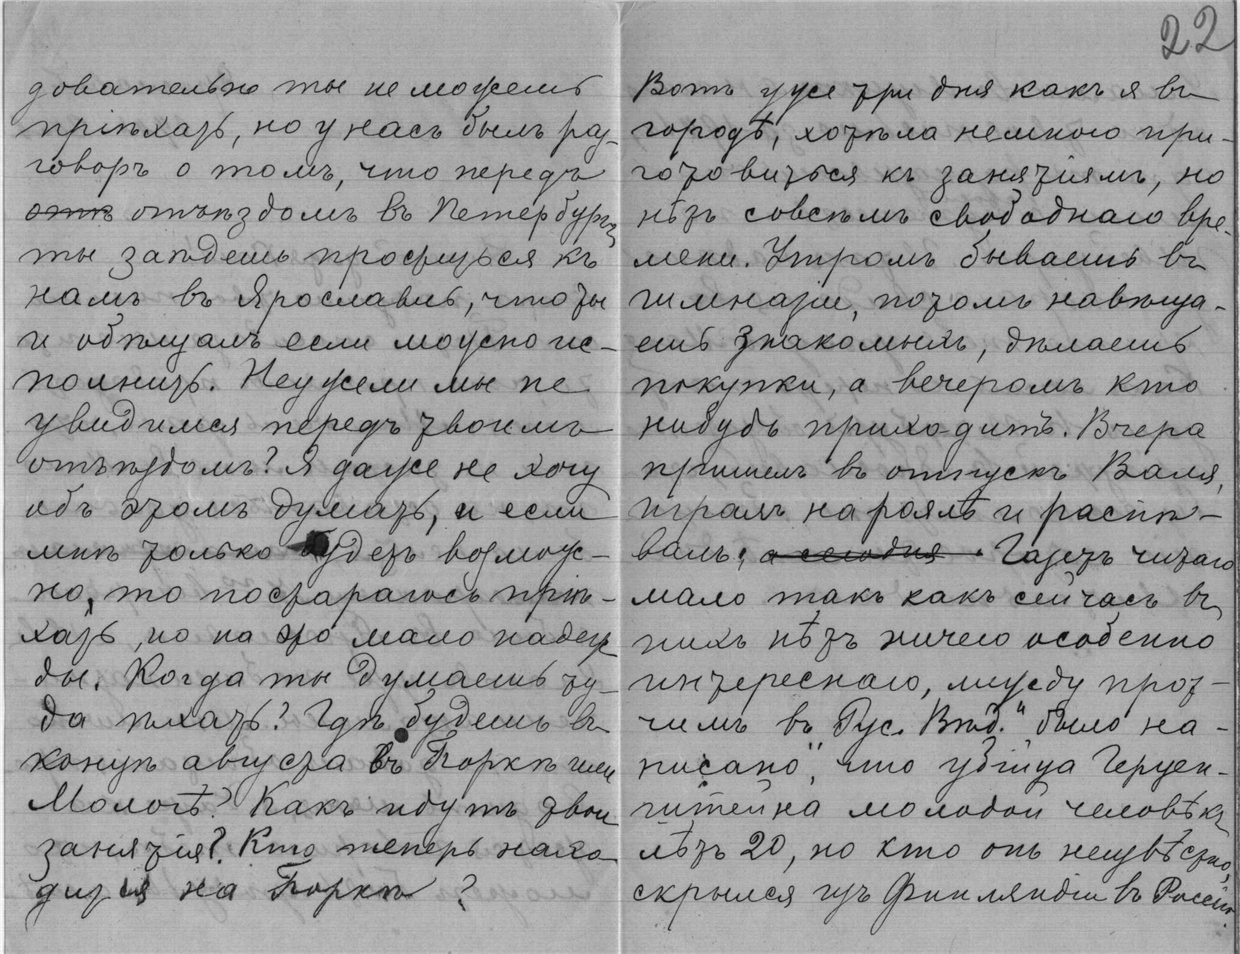 довательно ты не можешь
пріѣхать, но у насъ былъ раз-
говоръ о томъ, что передъ
отъ отъѣздомъ въ Петербургъ
ты заѣдешь проститься къ
намъ въ Ярославль, что ты
и обѣщалъ если можно ис-
полнить. Неужели мы не
увидимся передъ твоимъ
отъѣздомъ? Я даже не хочу
объ этомъ думать, и если
мнѣ только будетъ возмож-
но, то постараюсь пріѣ-
хать, но на это мало надеж
ды. Когда ты думаешь ту-
да ѣхать? Гдѣ будешь въ
концѣ августа въ Боркѣ или
Мологѣ? Какъ идутъ твои
занятія? Кто теперь нахо
дится на Боркѣ?
22
Вотъ уже три дня какъ я въ
городѣ, хотѣла немного при-
готовиться къ занятіямъ, но
нѣтъ совсѣмъ свободнаго вре-
мени. Утромъ бываешь въ
гимназіи, потомъ навѣща-
ешь знакомыхъ, дѣлаешь
покупки, а вечеромъ кто
нибудь приходитъ. Вчера
пришелъ въ отпускъ Валя,
игралъ на роялѣ и распѣ-
валъ; а сегодня. Газетъ читаю
мало такъ какъ сейчасъ въ
нихъ нѣтъ ничего особенно
интереснаго, между проч-
чимъ въ Рус. Вѣд." было на-
писано", что убійца Герцен-
штейна молодой человѣкъ
лѣтъ 20, но кто онъ неизвѣстно,
скрылся изъ Финляндіи въ Россію.